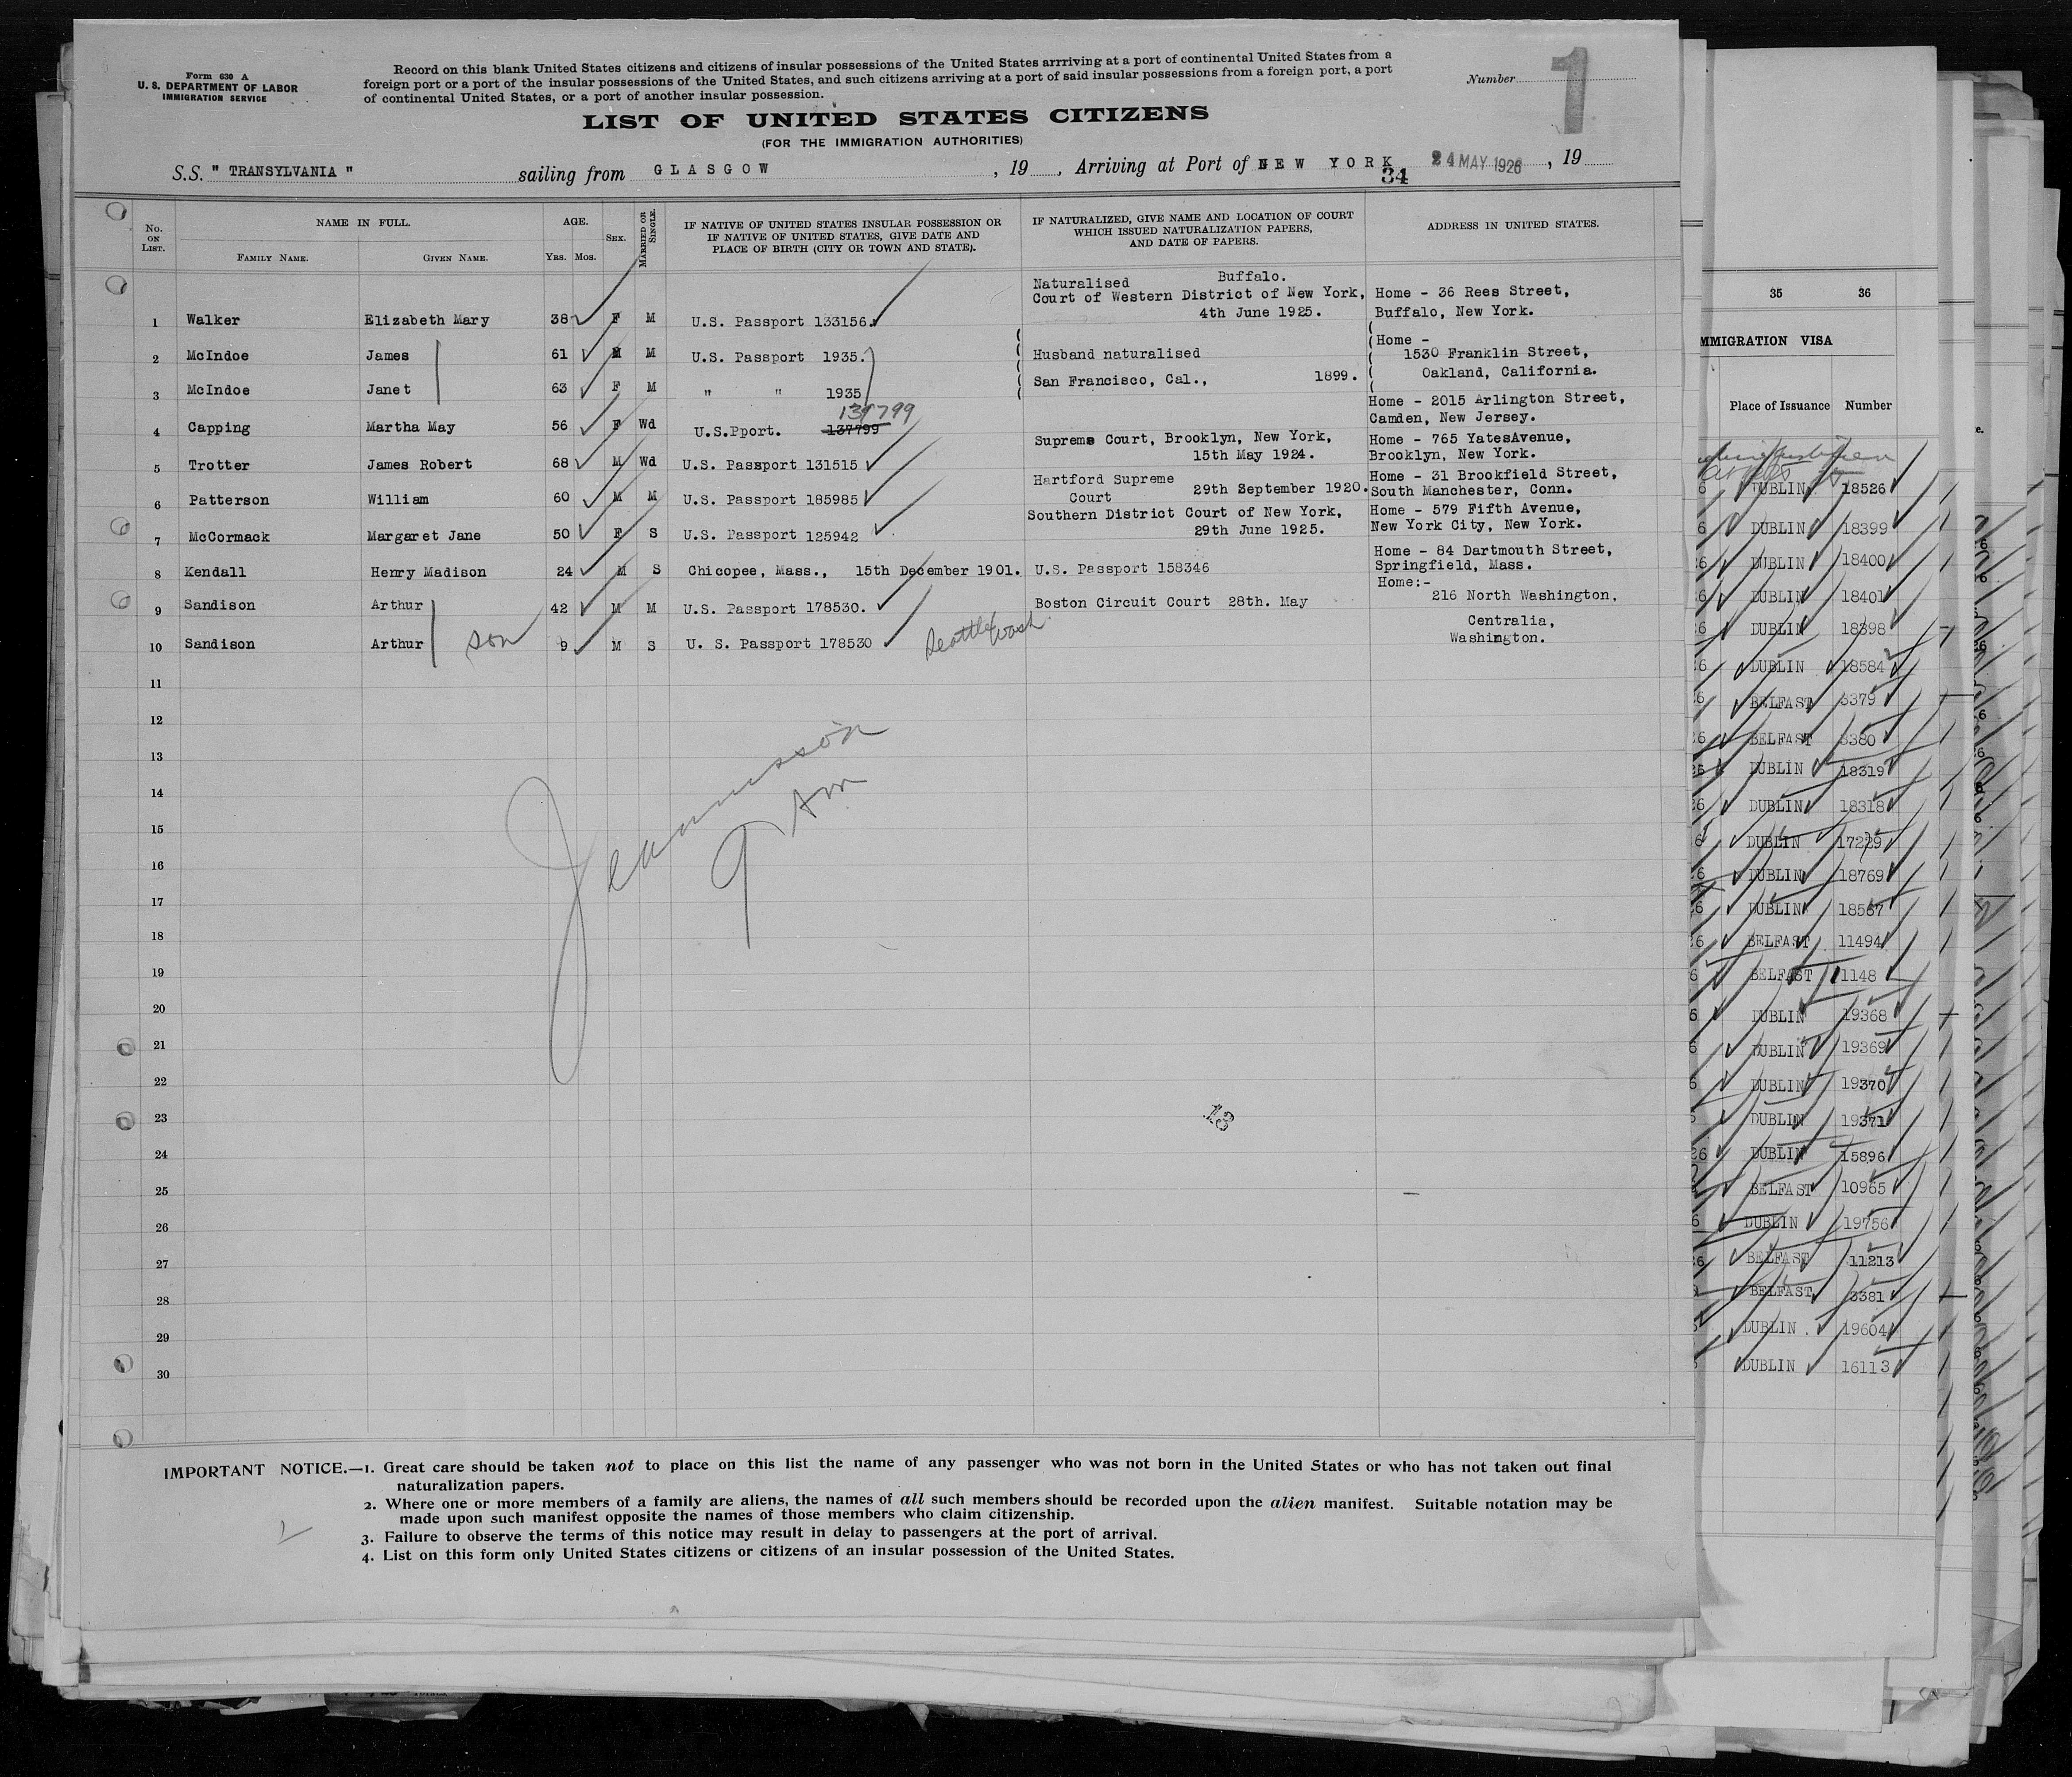 Form 630 A
U. S. DEPARTMENT OF LABOR
IMMIGRATION SERVICE
Record on this blank United States citizens and citizens of insular possessions of the United States arrriving at a port of continental United States from a
foreign port or a port of the insular possessions of the United States, and such citizens arriving at a port of said insular possessions from a foreign port, a port
of continental United States, or a port of another insular possession.
Number 1
LIST OF UNITED STATES CITIZENS
(FOR THE IMMIGRATION AUTHORITIES)
S.S. " TRANSYLVANIA " sailing from GLASGOW , 19 , Arriving at Port of NEW YORK 24 MAY 1926 , 19
34
No. ON LIST. NAME IN FULL. AGE. SEX. MARRIED OR SINGLE. IF NATIVE OF UNITED STATES INSULAR POSSESSION OR IF NATIVE OF UNITED STATES, GIVE DATE AND PLACE OF BIRTH (CITY OR TOWN AND STATE). IF NATURALIZED, GIVE NAME AND LOCATION OF COURT WHICH ISSUED NATURALIZATION PAPERS, AND DATE OF PAPERS. ADDRESS IN UNITED STATES.
FAMILY NAME. GIVEN NAME. Yrs. Mos.
Naturalised Buffalo.
Court of Western District of New York, Home - 36 Rees Street,
1 Walker Elizabeth Mary 38 F M U.S. Passport 133156. 4th June 1925. Buffalo, New York.
2 McIndoe James 61 M M U.S. Passport 1935. Husband naturalised Home - 1530 Franklin Street,
3 McIndoe Janet 63 F M " " 1935 San Francisco, Cal., 1899. Oakland, California.
137799
Home - 2015 Arlington Street,
4 Capping Martha May 56 F Wd U.S.Pport. 137799 Camden, New Jersey.
Supreme Court, Brooklyn, New York, Home - 765 YatesAvenue,
5 Trotter James Robert 68 M Wd U.S. Passport 131515 15th May 1924. Brooklyn, New York.
Hartford Supreme Home - 31 Brookfield Street,
6 Patterson William 60 M M U.S. Passport 185985 Court 29th September 1920. South Manchester, Conn.
Southern District Court of New York, Home - 579 Fifth Avenue,
7 McCormack Margaret Jane 50 F S U.S. Passport 125942 29th June 1925. New York City, New York.
Home - 84 Dartmouth Street,
8 Kendall Henry Madison 24 M S Chicopee, Mass., 15th December 1901. U.S. Passport 158346 Springfield, Mass.
Home:-
9 Sandison Arthur 42 M M U.S. Passport 178530. Boston Circuit Court 28th. May 216 North Washington,
10 Sandison Arthur son 9 M S U. S. Passport 178530 Seattle Wash Centralia,
Washington.
11
12
13
14
15
16
17
18
19
20
21
22
23
24
25
26
27
28
29
30
9
13
IMPORTANT NOTICE.—1. Great care should be taken not to place on this list the name of any passenger who was not born in the United States or who has not taken out final
naturalization papers.
2. Where one or more members of a family are aliens, the names of all such members should be recorded upon the alien manifest. Suitable notation may be
made upon such manifest opposite the names of those members who claim citizenship.
3. Failure to observe the terms of this notice may result in delay to passengers at the port of arrival.
4. List on this form only United States citizens or citizens of an insular possession of the United States.
35 36
MMIGRATION VISA
Place of Issuance Number
DUBLIN 18526
DUBLIN 18399
DUBLIN 18400
DUBLIN 18401
DUBLIN 18398
DUBLIN 18584
BELFAST 3379
BELFAST 3380
DUBLIN 18319
DUBLIN 18318
DUBLIN 17229
DUBLIN 18769
DUBLIN 18567
BELFAST 11494
BELFAST 1148
DUBLIN 19368
DUBLIN 19369
DUBLIN 19370
DUBLIN 19371
DUBLIN 15896
BELFAST 10965
DUBLIN 19756
BELFAST 11213
BELFAST 3381
DUBLIN 19604
DUBLIN 16113